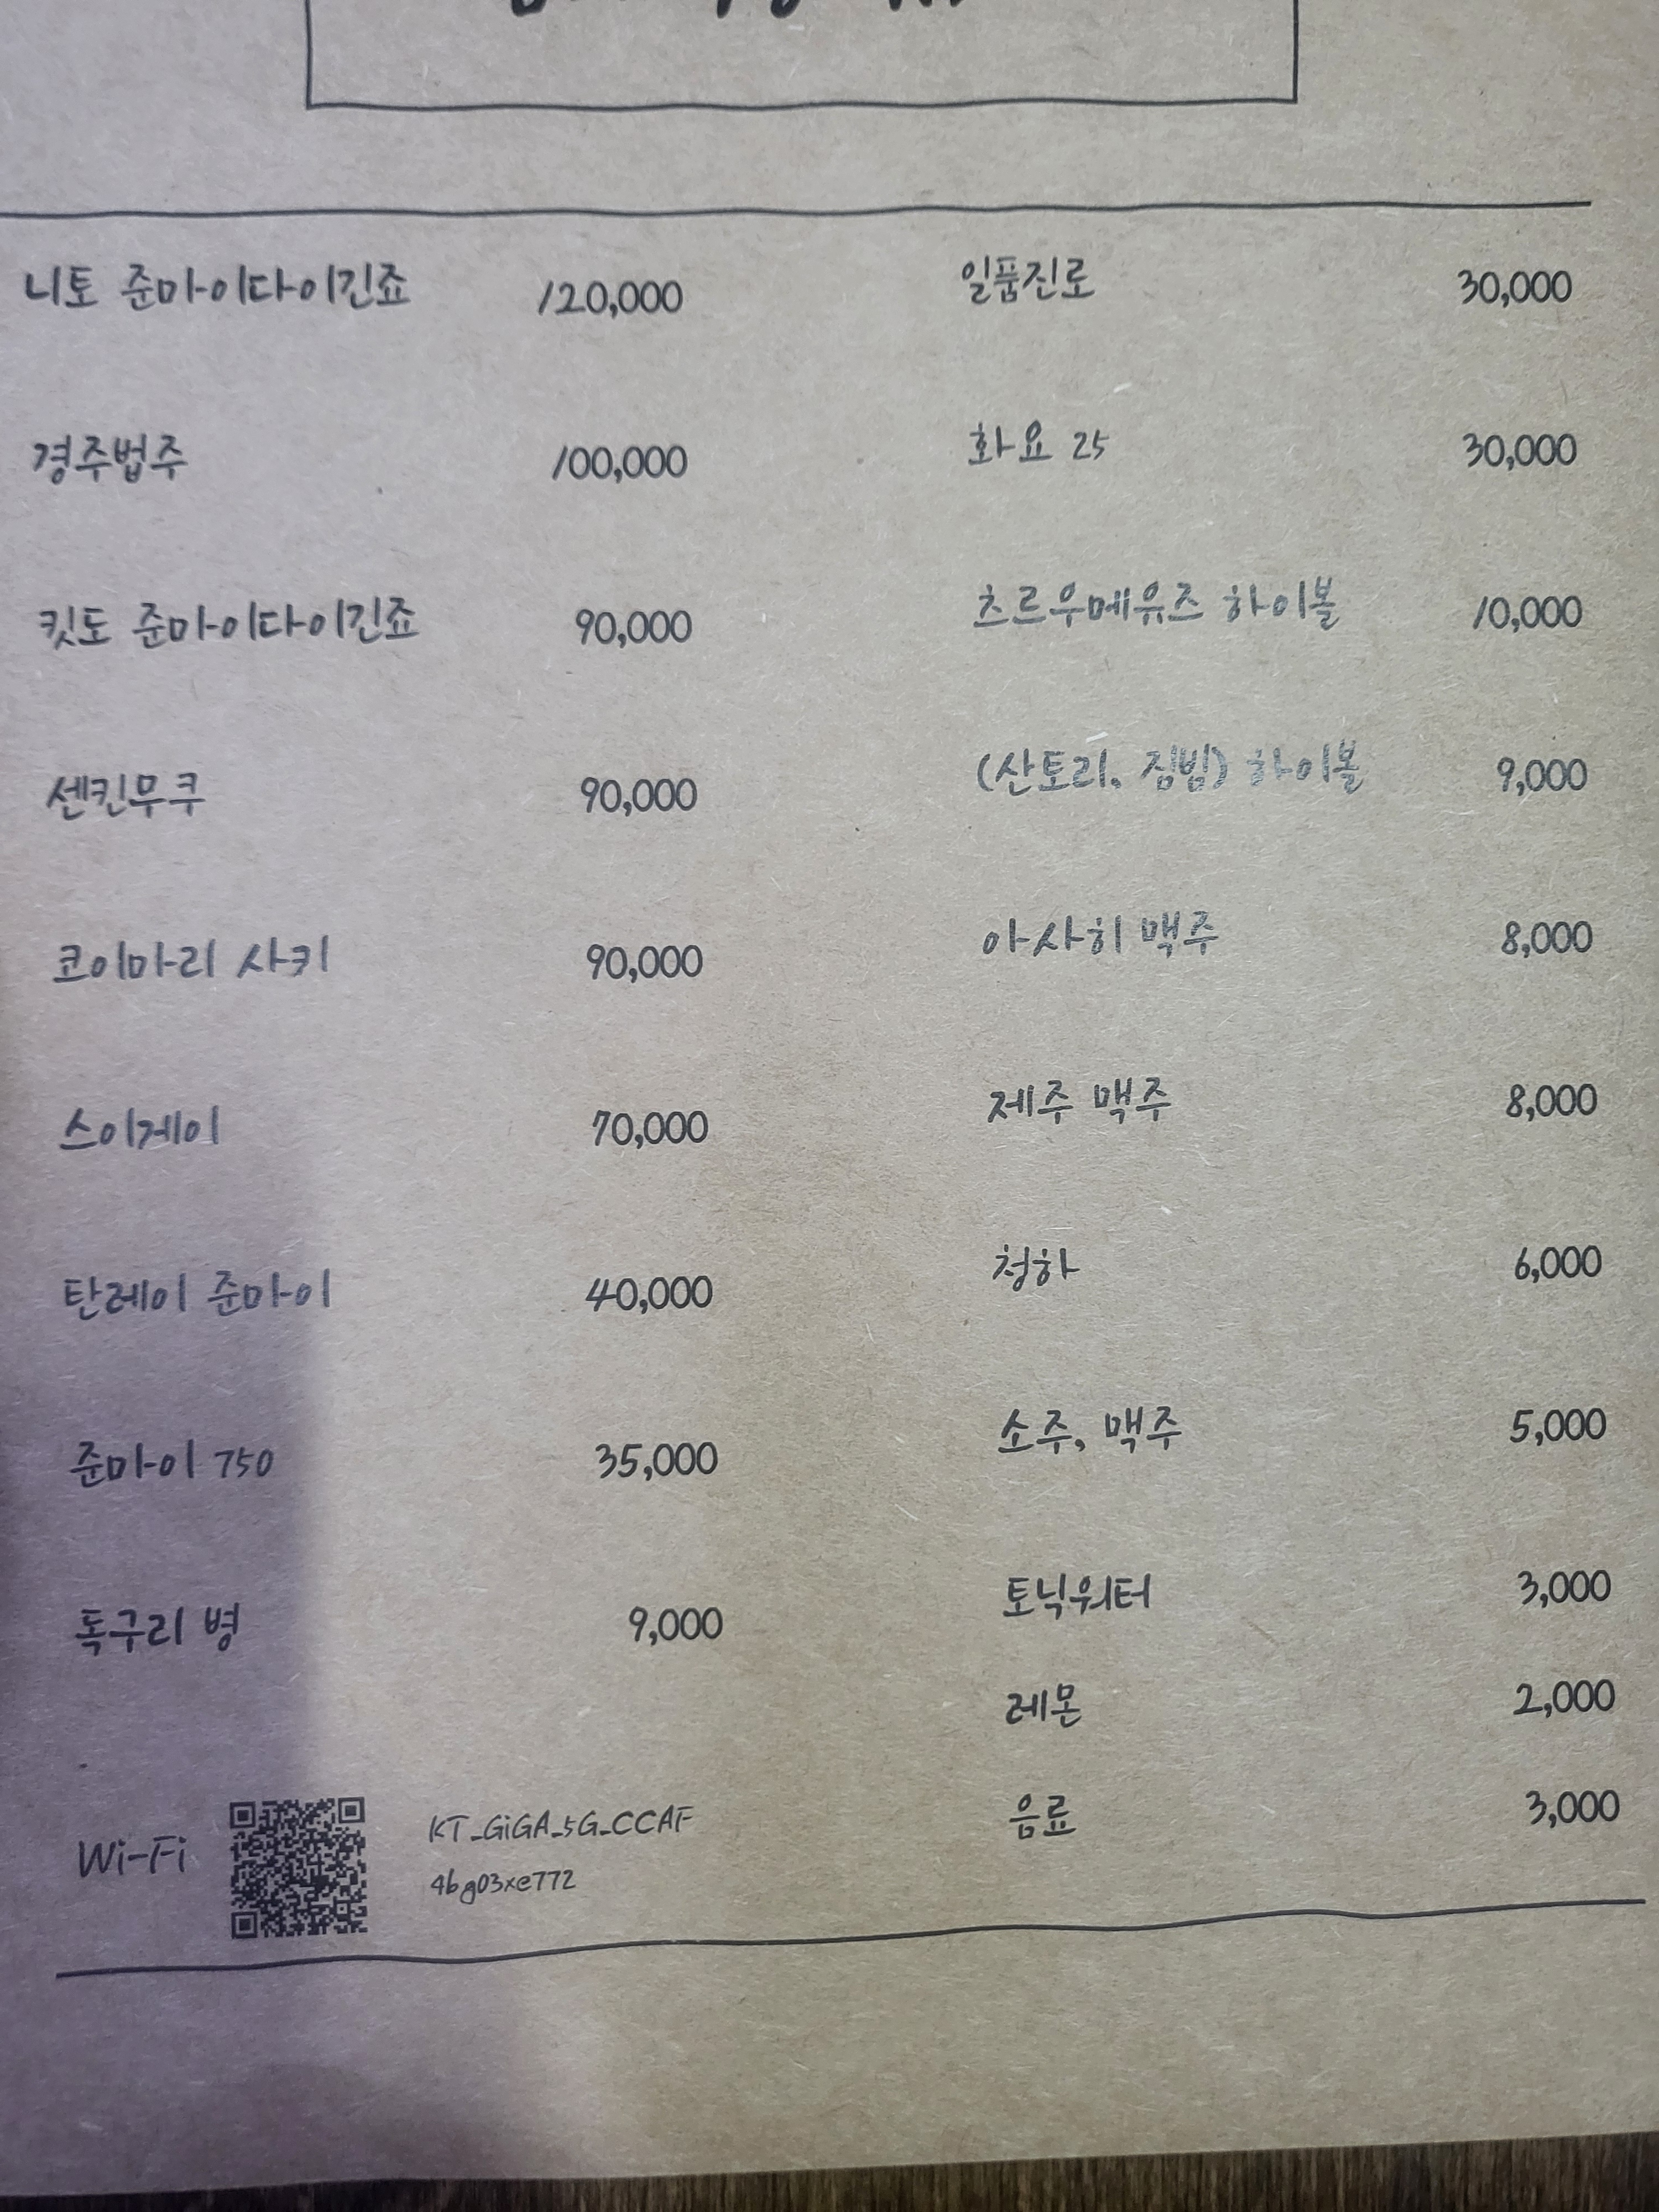 니토 준마이다이긴죠 120,000
경주법주 100,000
킷도 준마이다이긴죠 90,000
센킨무쿠 90,000
코이마리 사키 90,000
스이게이 70,000
탄레이 준마이 40,000
준마이 750 35,000
독구리 병 9,000
일품진로 30,000
화요 25 30,000
츠르우메유즈 하이볼 10,000
(산토리, 짐빔) 하이볼 9,000
아사히 맥주 8,000
제주 맥주 8,000
청하 6,000
소주, 맥주 5,000
토닉워터 3,000
레몬 2,000
음료 3,000
Wi-Fi
KT_GiGA_5G_CCAF
4bg03xe772